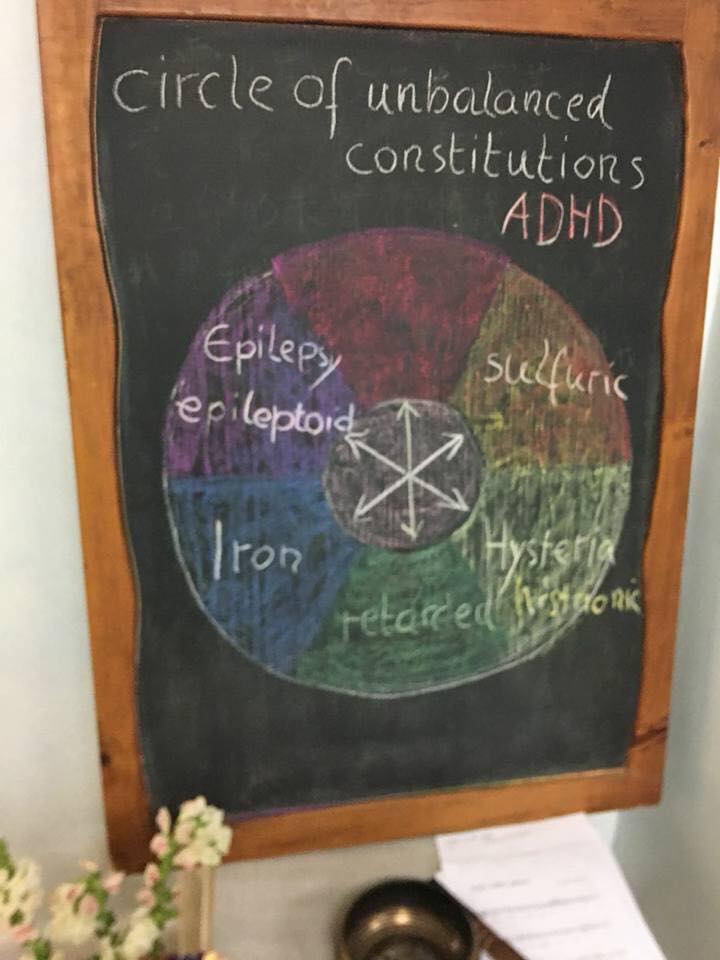 circle of unbalanced
constitutions
ADHD
Epilepsy
epileptoid
sulfuric
Iron
Hysteria
histrionic
retarded